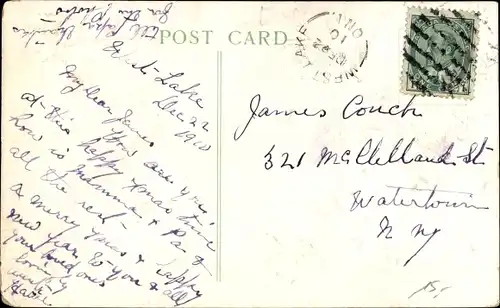 Many thanks
for the photos
POST CARD
WEST LAKE
DE 22
10
ONT
West Lake
Dec 22
1910
My dear James
How are you
at this happy Xmas time
how is Grandma & Pa &
all the rest
A merry Xmas & happy
new year to you & all
your loved ones
loving
Aunt
James Couch
321 McClelland St
Watertown
N Ny